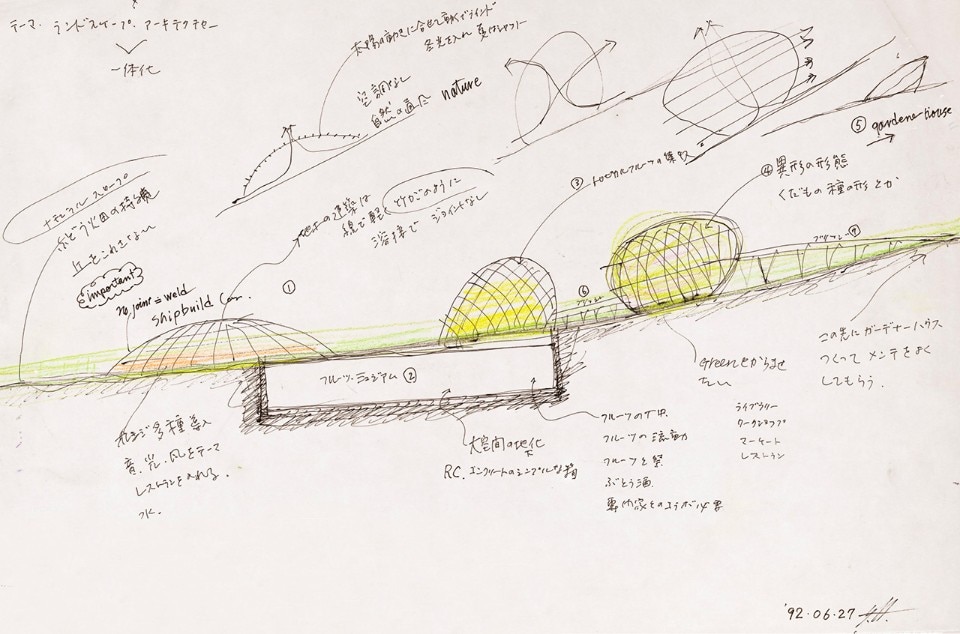 テーマ・ランドスケープ・アーキテクチャー
一体化
太陽の動きに合せて動くブラインド
冬光を入れ 夏はシャット
空調なし
自然の通風
nature
⑤ gardener house
③ トロピカルフルーツの集録
④ 異形の形態
くだもの種の形とか
ナチュラルスロープ
ぶどう園の
丘をこわさない
important
no joint = weld
shipbuild
地上の建築は
線で軽く とりかごのように
溶接で ジョイントなし
①
⑥ ブリッジ
ブリッジ ⑦
フルーツ・ミュージアム ②
Greenとからませ
たい
この先にガーデナーハウス
つくって メンテをよく
してもらう。
ライブラリー
ワークショップ
マーケット
レストラン
多種導入
音、光、風をテーマ
レストランを入れる。
水.
大空間の地下化
RC. コンクリートのシンプルな箱
フルーツの
フルーツの流動
フルーツと
ぶどう酒
専門家とのコラボ必要
'92.06.27